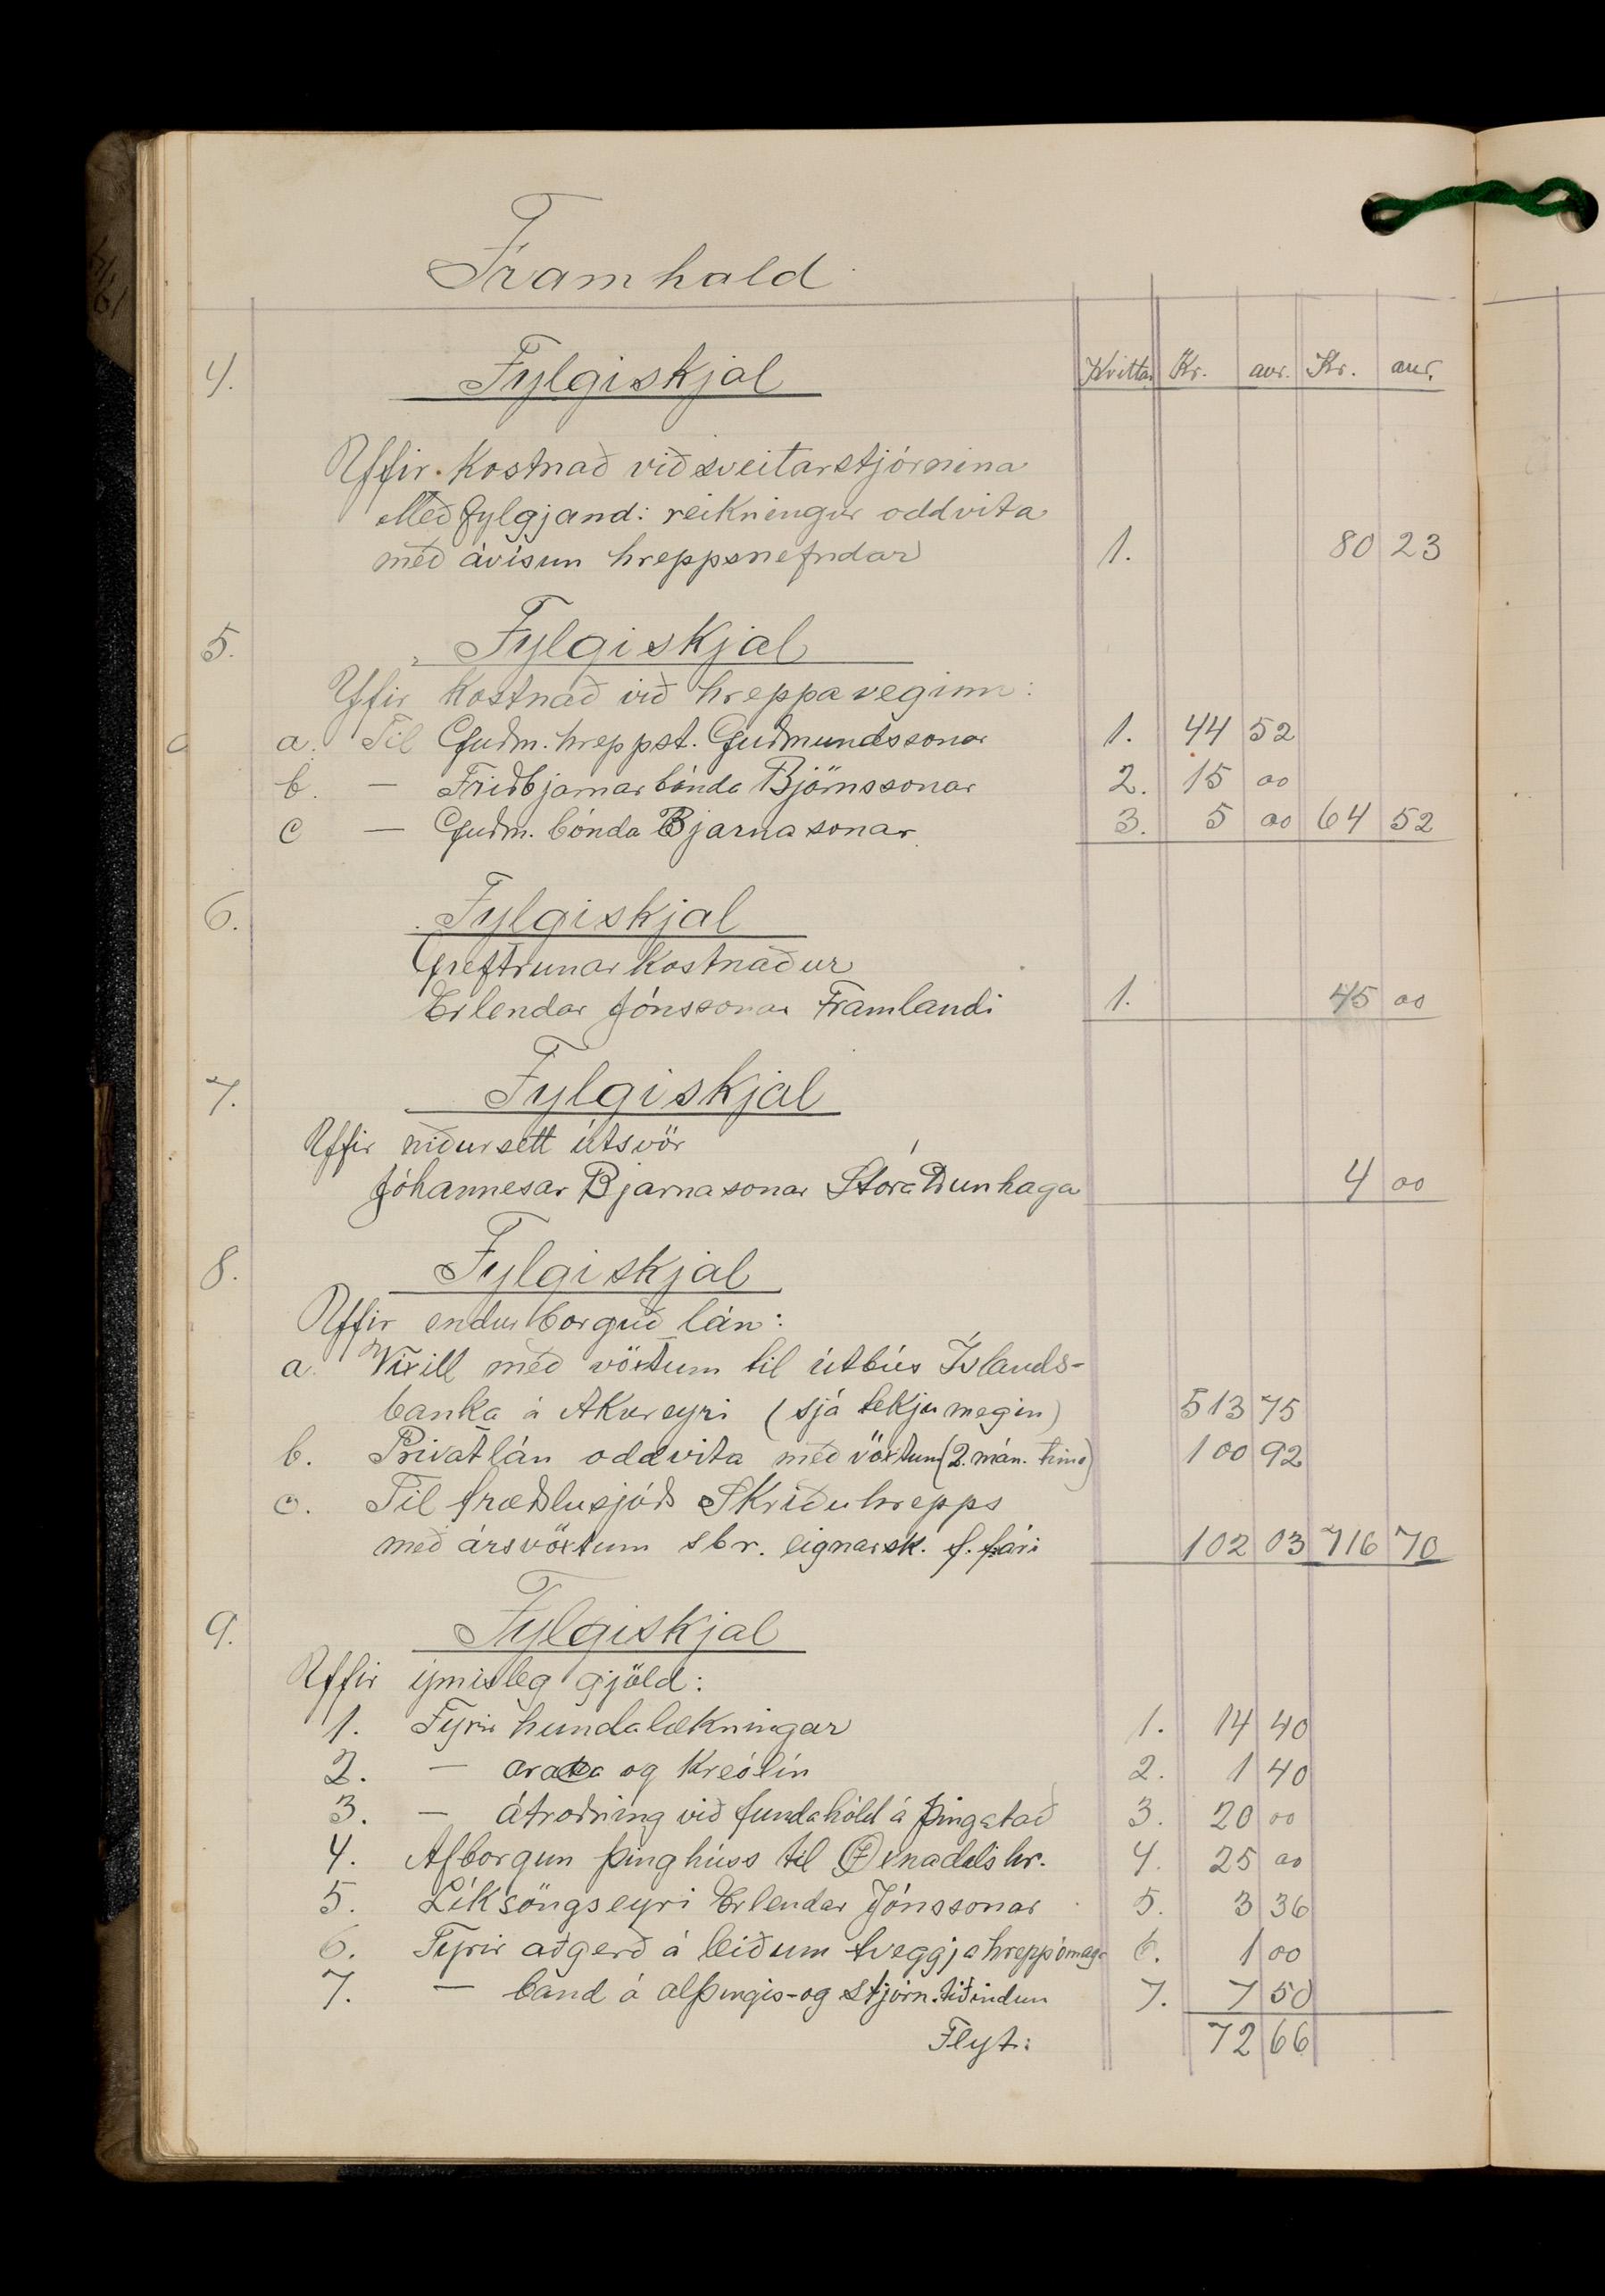 Framhald
4. Fylgiskjal Kvittan Kr. aur. Kr. aur.
Yfir kostnað við sveitarstjórnina
Með fylgjand: reikningur oddvita
með ávísun hreppsnefndar 1. 80 23
5. Fylgiskjal
Yfir kostnað við hreppaveginn:
a. Til Guðm. hreppst. Guðmundssonar 1. 44 52
b. — Friðbjarnar bónda Björnssonar 2. 15 00
c — Guðm. bónda Bjarnasonar 3. 5 00 64 52
6. Fylgiskjal
Greftrunarkostnaður
Erlendar Jónssonar Framlandi 1. 45 00
7. Fylgiskjal
Yfir niðursett útsvör
Jóhannesar Bjarnasonar Stóra Dunhaga 4 00
8. Fylgiskjal
Yfir endurborguð lán:
a. Víxill með vöxtum til útbús Íslands-
banka á Akureyri (sjá tekjumegin) 513 75
b. Privatlán oddvita með vöxtum (2. mán. tími) 100 92
c. Til fræðslusjóðs Skriðuhrepps
með ársvöxtum sbr. eignarsk. f. f. ári 102 03 716 70
9. Fylgiskjal
Yfir ýmisleg gjöld:
1. Fyrir hundalækningar 1. 14 40
2. — og Kreólín 2. 1 40
3. — átroðning við fundahöld á þingstað 3. 20 00
4. Afborgun þinghúss til 4. 25 00
5. Líksöngseyri Erlendar Jónssonar 5. 3 36
6. Fyrir aðgerð á leiðum tveggja hreppsómaga 6. 1 00
7. — band á alþingis-og stjórn.tíðindum 7. 7 50
Flyt: 72 66